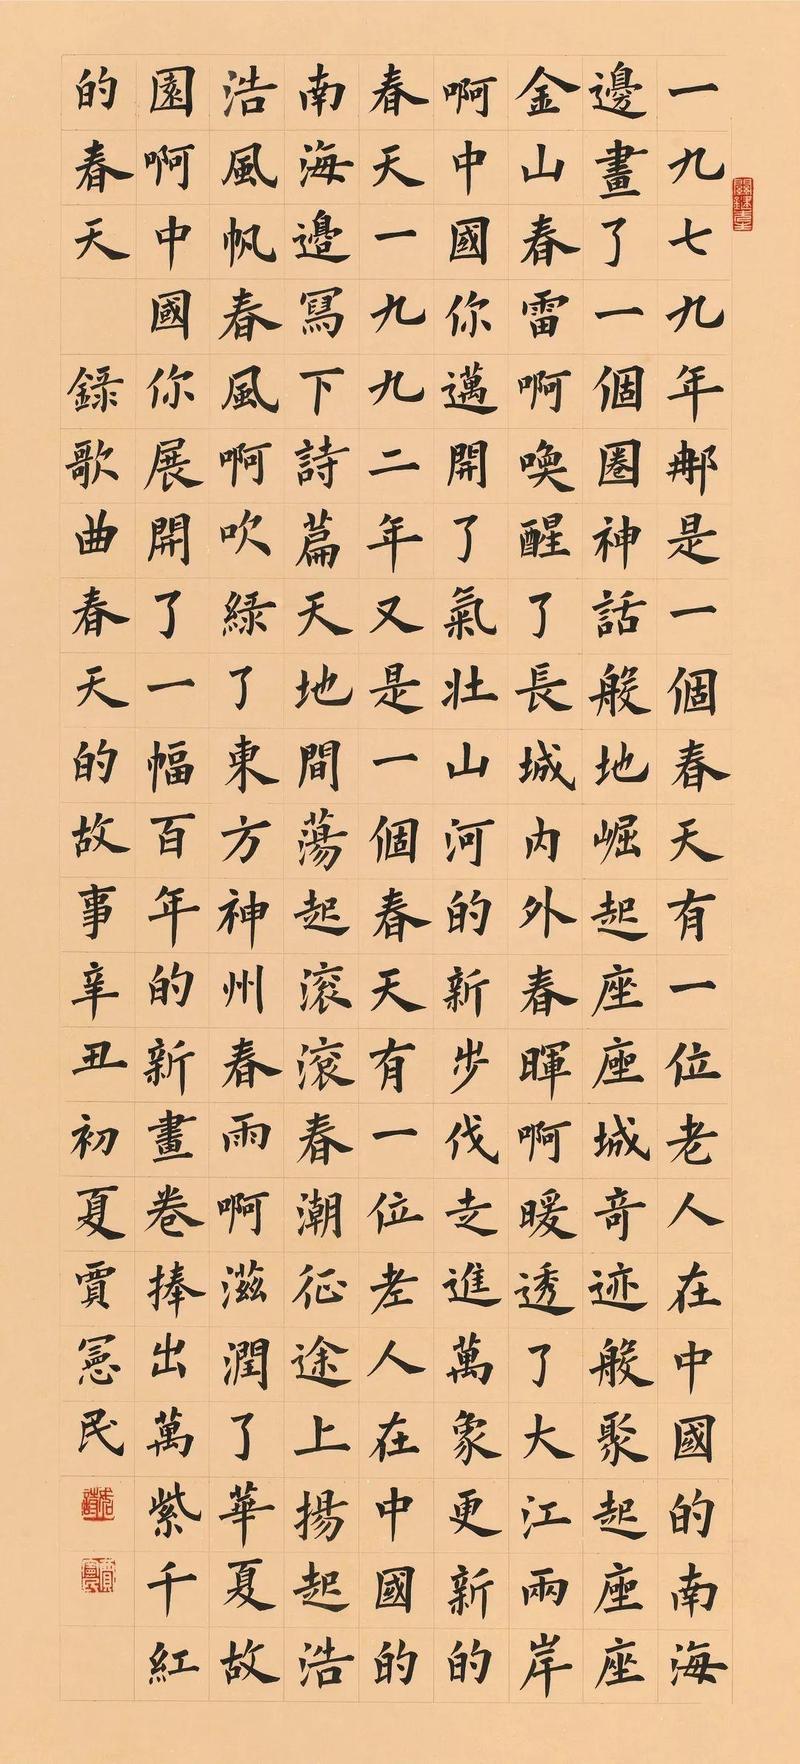 一九七九年那是一個春天有一位老人在中國的南海
邊畫了一個圈神話般地崛起座座城奇迹般聚起座座
金山春雷啊喚醒了長城内外春暉啊暖透了大江兩岸
啊中國你邁開了氣壯山河的新步伐走進萬象更新的
春天一九九二年又是一個春天有一位老人在中國的
南海邊寫下詩篇天地間蕩起滚滚春潮征途上揚起浩
浩風帆春風啊吹綠了東方神州春雨啊滋潤了華夏故
園啊中國你展開了一幅百年的新畫卷捧出萬紫千紅
的春天 錄歌曲春天的故事辛丑初夏賈憲民